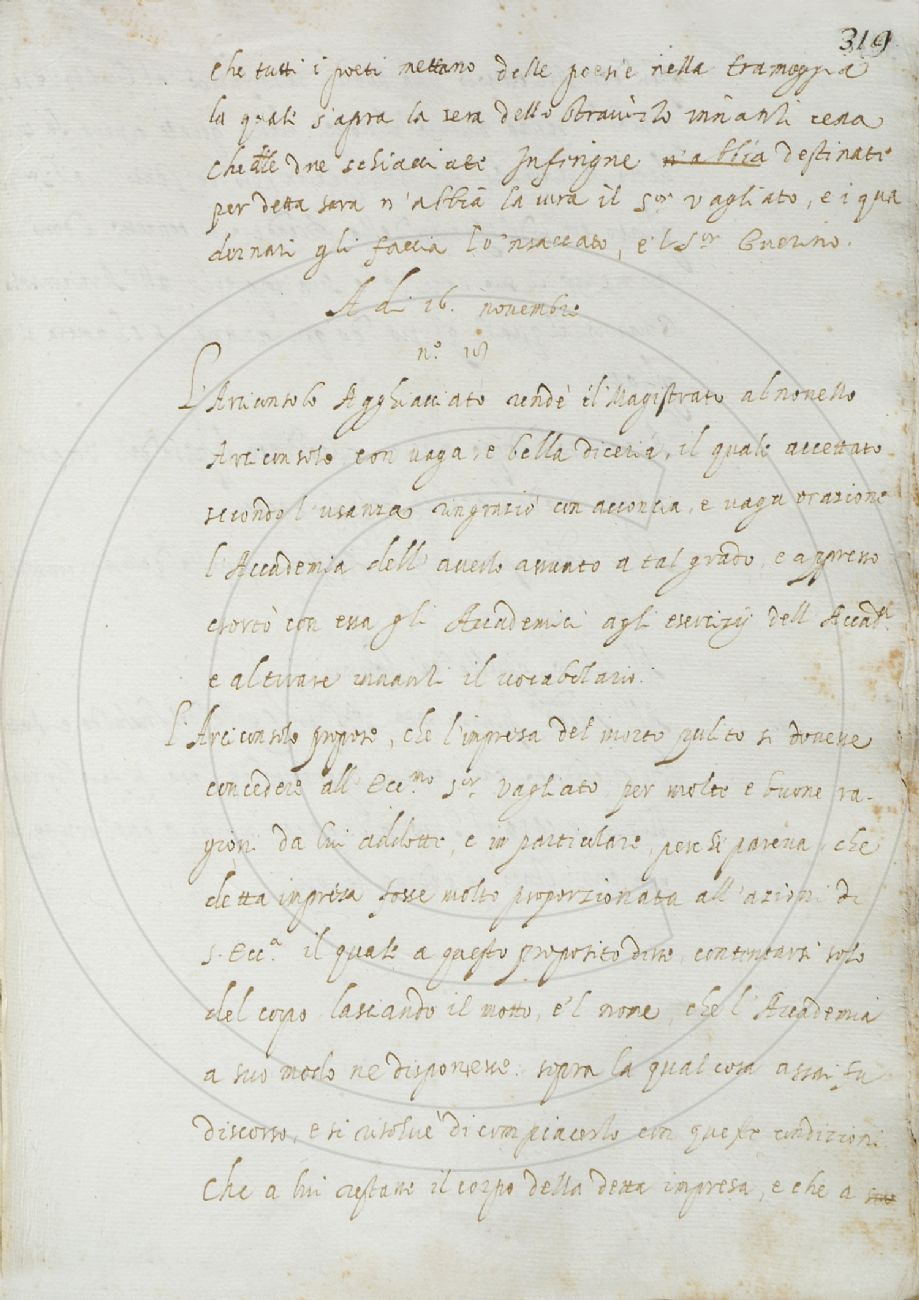 319
Che tutti i poeti mettano delle poesie nella tramoggia
la quale s'apra la sera dello Stravizzo innanti cena
Che delle due schiacciate Infrigne n'abbia destinate
per detta sera n'abbia la cura il S.or Vagliato, e i qua
dernari gli faccia lo 'nsaccato, e 'l S.or Guerino.
A di 16. novembre
n.o
L'Arciconsolo Agghiacciato rendè il Magistrato al novello
Arciconsolo con vaga, e bella diceria, il quale accettato
secondo l'usanza ringraziò con acconcia, e vaga orazione
l'Accademia dell'averlo assunto a tal grado, e appresso
esortò con essa gli Accademici agli esercizij dell'Accad.a
e al tirare innanti il vocabolario.
L'Arciconsolo propose, che l'impresa del morto pulito si dovesse
concedere all'Ecc.mo S.or Vagliato per molte e buone ra-
gioni da lui addotte, e in particulare, perche pareva, che
detta impresa fosse molto proporzionata all'azioni di
S. Ecc.a il quale a questo proposito disse, contentarsi solo
del corpo lasciando il motto, e 'l nome, che l'Accademia
a suo modo ne disponesse: sopra la qual cosa assai fu
discorso, e si risolvè di compiacerlo con queste condizioni
Che a lui restasse il corpo della detta impresa, e che a suo